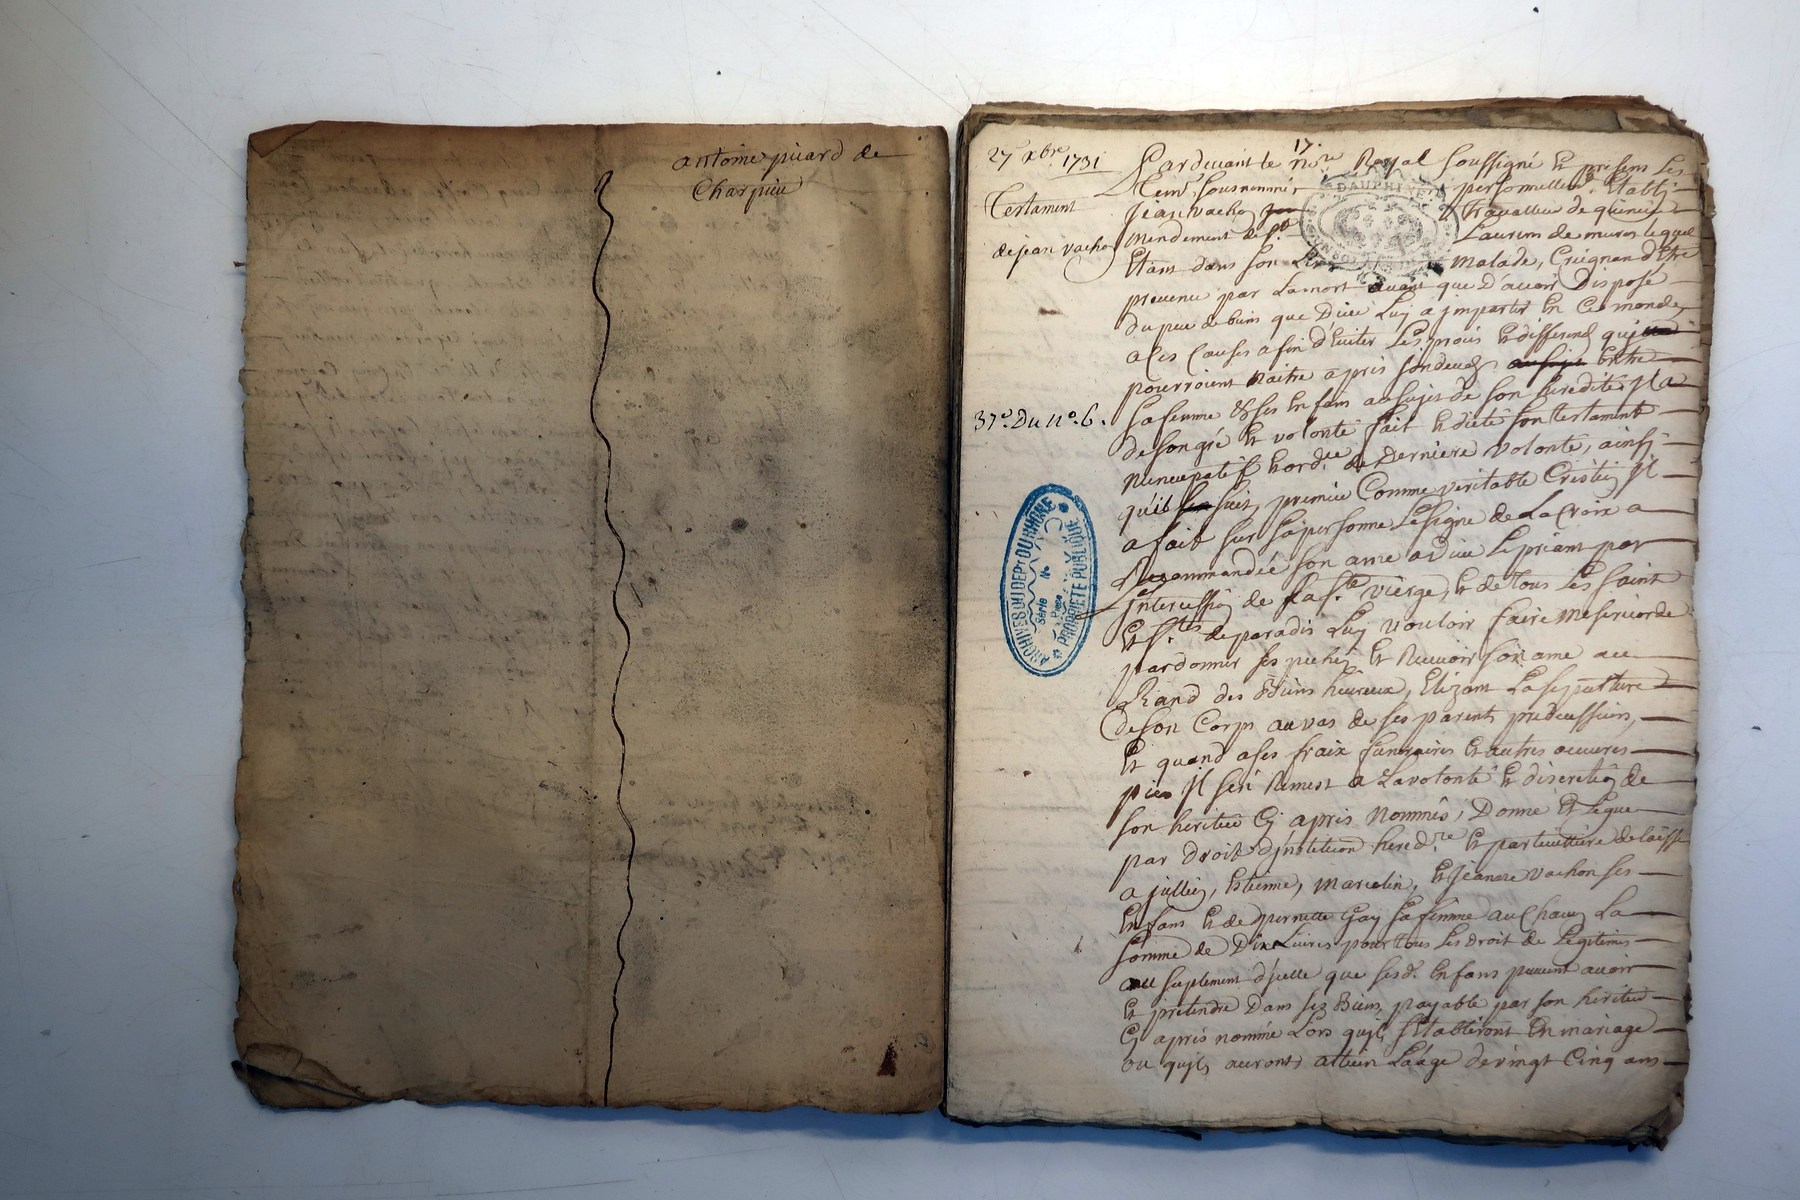 antoine picard de
Charpieu
17.
27e xbre 1731
Testament
de jean vachon
37e. Du n°. 6.
ARCHIVES DU DEPt DU RHONE
Série No
Pièce
PROPRIETE PUBLIQUE
DAUPHINE
Pardevant le nre Royal soussigné Et presens les
temn. sousnommés personnellemt. Etably
Jean vachon travailleur de
Mendement de St. Laurens de mures lequel
Etans dans son malade, Creignant d'Etre
prevenu par La mort avant que D'avoir Disposé
du peu de biens que Dieu Luy a jmpartis En Ce monde,
a Ces Causes afin d'Eviter Les procés Et differend qui
pourroient Naitre apres son deceds Entre
Sa femme & ses Enfans au sujet de son heredité Jl a
de son gré Et volonté fait Et dicté son testament
Nuncupatif Et ord.re de Derniere volonté, ainsy
qu'il suit, premier Comme veritable Crêtien Jl
a fait sur sa personne Le signe de La Croix a
Recommandé son ame a Dieu Le priant par
Les
Jntercession de La Ste. vierge, Et de tous Les saint
Et Stes. de paradis Luy vouloir faire Misericorde
pardonner ses pechez Et Recevoir son ame au
Rand des Biens heureux, Elizant La sepulture
de son Corps au vas de ses parents predecesseurs,
Et quand a ses fraix funeraires Et autres oeuvres
pies Jl s'en Remest a La volonté Et discretion de
son heritier Cy apres Nommés, Donne Et Legue
par droit d'jnstitution hered.re Et particulliere delaisse
a jullien, Estienne, Marcelin, Et Jeanne vachon ses
Enfans Et de pernette Gay sa femme au Chacun La
somme de Dix Livres pour tous Les droit de Legitimes
ou suplement d'jcelle que sesd. Enfans peuvent avoir
Et pretendre Dans ses Biens, payable par son heritier
Cy apres nommé Lors qu'jls s'Etabliront En mariage
ou qu'jls auront attein L'aâge de vingt Cinq ans